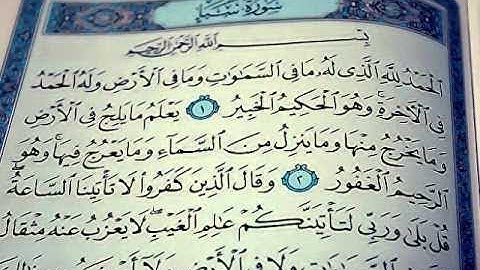 سُورَةُ سَبَإٍ
بِسْمِ ٱللَّهِ ٱلرَّحْمَٰنِ ٱلرَّحِيمِ
ٱلْحَمْدُ لِلَّهِ ٱلَّذِى لَهُۥ مَا فِى ٱلسَّمَٰوَٰتِ وَمَا فِى ٱلْأَرْضِ وَلَهُ ٱلْحَمْدُ
فِى ٱلْأَخِرَةِ ۚ وَهُوَ ٱلْحَكِيمُ ٱلْخَبِيرُ ١ يَعْلَمُ مَا يَلِجُ فِى ٱلْأَرْضِ
وَمَا يَخْرُجُ مِنْهَا وَمَا يَنزِلُ مِنَ ٱلسَّمَآءِ وَمَا يَعْرُجُ فِيهَا ۚ وَهُوَ
ٱلرَّحِيمُ ٱلْغَفُورُ ٢ وَقَالَ ٱلَّذِينَ كَفَرُوا۟ لَا تَأْتِينَا ٱلسَّاعَةُ ۖ
قُلْ بَلَىٰ وَرَبِّى لَتَأْتِيَنَّكُمْ عَٰلِمِ ٱلْغَيْبِ ۖ لَا يَعْزُبُ عَنْهُ مِثْقَالُ